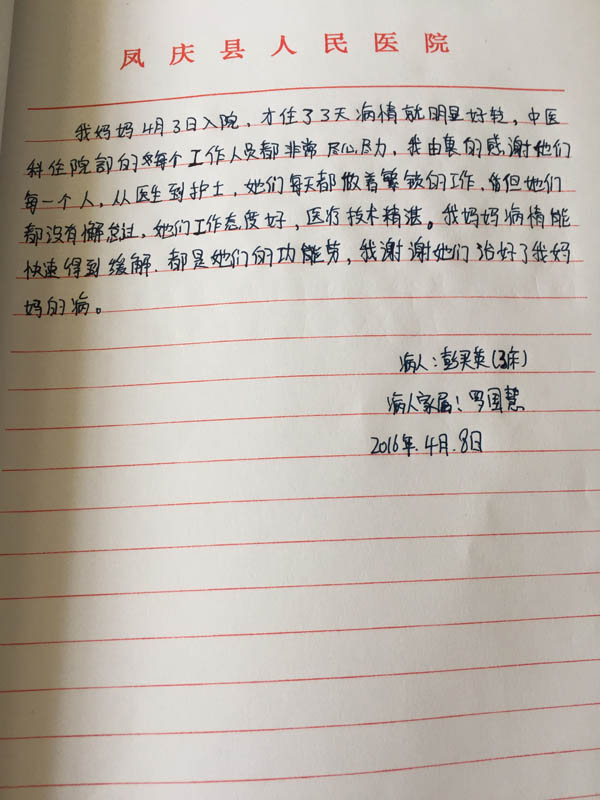 凤庆县人民医院
我妈妈4月3日入院，才住了3天病情就明显好转，中医
科住院部的每个工作人员都非常尽心尽力，我由衷的感谢她们
每一个人，从医生到护士，她们每天都做着繁锁的工作，但她们
都没有懈怠过，她们工作态度好，医疗技术精湛。我妈妈病情能
快速得到缓解．都是她们的功劳，我谢谢她们治好了我妈
妈的病。
病人：彭灵英(3床)
病人家属：罗国慧
2016年.4月.8日